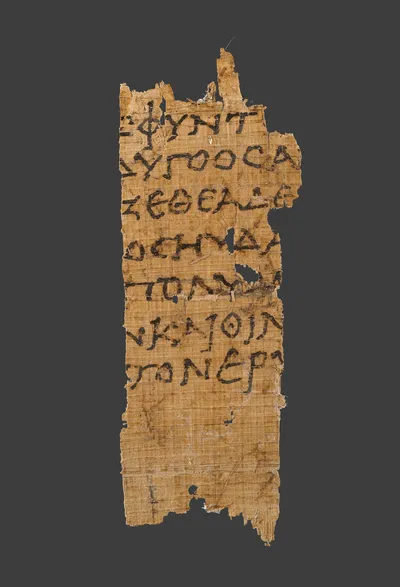 ΕΦΥΝΤ
ΔΥΓΟΟϹΑ
ΖΕΘΕΑΔΕ
ΟϹΗΥΔΑ
ΠΟΛΥΜ
ΝΚΑΙΘΙΝ
ΤΟΝΕΡΥ